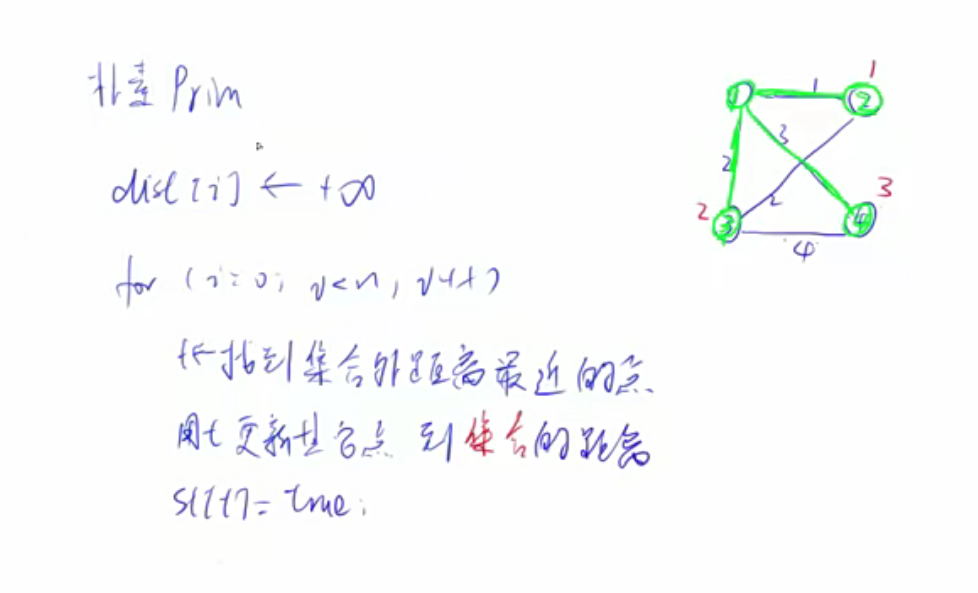 朴素 Prim
dist[i] ← +∞
for (i=0; i<n; i++)
t←找到集合外距离最近的点
用t更新其它点到集合的距离
st[t]=true;
1
1
1
2
3
2
2
3
2
3
4
4